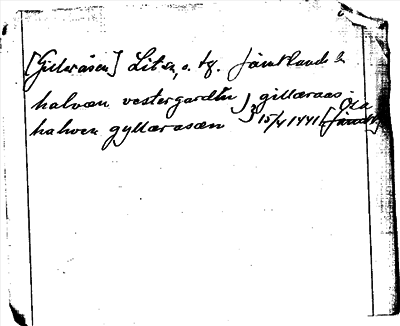 [Gilleråsen] Lits s. tg. Jämtlands l.
halwæn vestergardin } gillæraas
halwen gyllæraasæn } 3 15/4 1441 Ola [Jämtl]